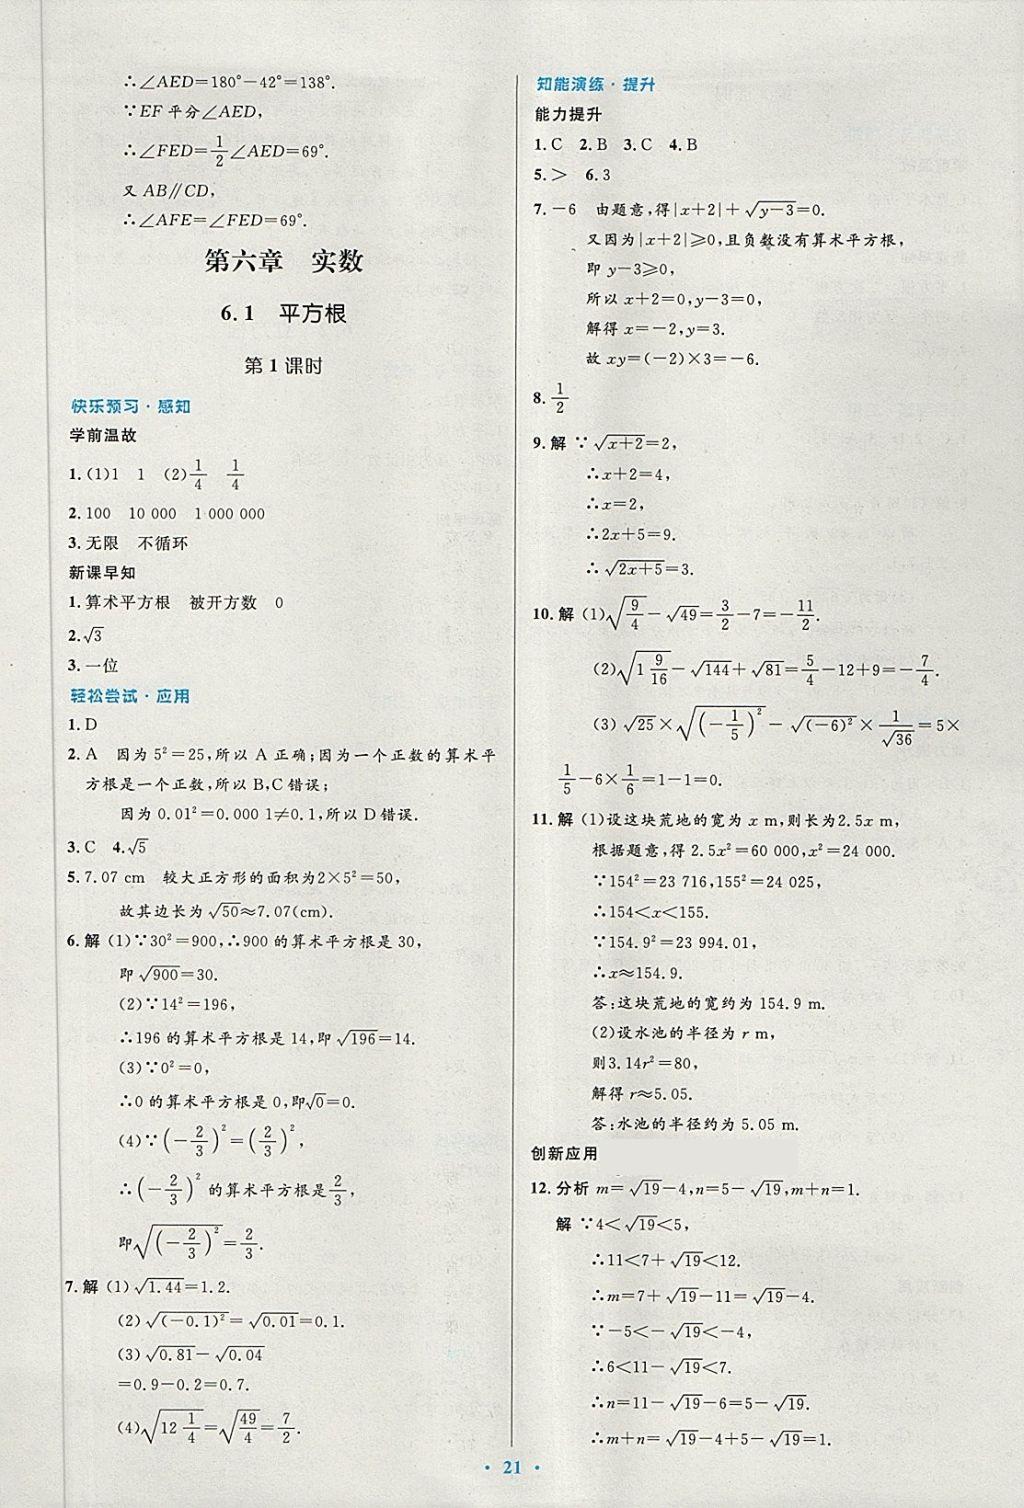 ∴∠AED=180°-42°=138°.
∵EF 平分∠AED,
∴∠FED=1/2∠AED=69°.
又 AB∥CD,
∴∠AFE=∠FED=69°.
第六章　实数
6.1　平方根
第 1 课时
快乐预习·感知
学前温故
1.(1)1　1　(2)1/4　1/4
2.100　10 000　1 000 000
3.无限　不循环
新课早知
1.算术平方根　被开方数　0
2.√3
3.一位
轻松尝试·应用
1.D
2.A　因为 5²=25,所以 A 正确;因为一个正数的算术平
方根是一个正数,所以 B,C 错误;
因为 0.01²=0.000 1≠0.1,所以 D 错误.
3.C　4.√5
5.7.07 cm　较大正方形的面积为2×5²=50,
故其边长为 √50≈7.07(cm).
6.解 (1)∵30²=900,∴900 的算术平方根是 30,
即 √900=30.
(2)∵14²=196,
∴196 的算术平方根是 14,即 √196=14.
(3)∵0²=0,
∴0 的算术平方根是 0,即√0=0.
(4)∵(-2/3)²=(2/3)²,
∴(-2/3)² 的算术平方根是2/3,
即√((-2/3)²)=2/3.
7.解 (1)√1.44=1.2.
(2)√((-0.1)²)=√0.01=0.1.
(3)√0.81-√0.04
=0.9-0.2=0.7.
(4)√(12 1/4)=√(49/4)=7/2.
知能演练·提升
能力提升
1.C　2.B　3.C　4.B
5.>　6.3
7.-6　由题意,得|x+2|+√(y-3)=0.
又因为|x+2|≥0,且负数没有算术平方根,
即 y-3≥0,
所以 x+2=0,y-3=0,
解得 x=-2,y=3.
故 xy=(-2)×3=-6.
8.1/2
9.解 ∵√(x+2)=2,
∴x+2=4,
∴x=2,
∴2x+5=9.
∴√(2x+5)=3.
10.解 (1)√(9/4)-√49=3/2-7=-11/2.
(2)√(1 9/16)-√144+√81=5/4-12+9=-7/4.
(3)√25×√((-1/5)²)-√((-6)²)×1/√36=5×
1/5-6×1/6=1-1=0.
11.解 (1)设这块荒地的宽为 x m,则长为2.5x m,
根据题意,得 2.5x²=60 000,x²=24 000.
∵154²=23 716,155²=24 025,
∴154<x<155.
∵154.9²=23 994.01,
∴x≈154.9.
答:这块荒地的宽约为 154.9 m.
(2)设水池的半径为 r m,
则3.14r²=80,
解得 r≈5.05.
答:水池的半径约为 5.05 m.
创新应用
12.分析 m=√19-4,n=5-√19,m+n=1.
解 ∵4<√19<5,
∴11<7+√19<12.
∴m=7+√19-11=√19-4.
∵-5<-√19<-4,
∴6<11-√19<7.
∴n=11-√19-6=5-√19.
∴m+n=√19-4+5-√19=1.
· 21 ·